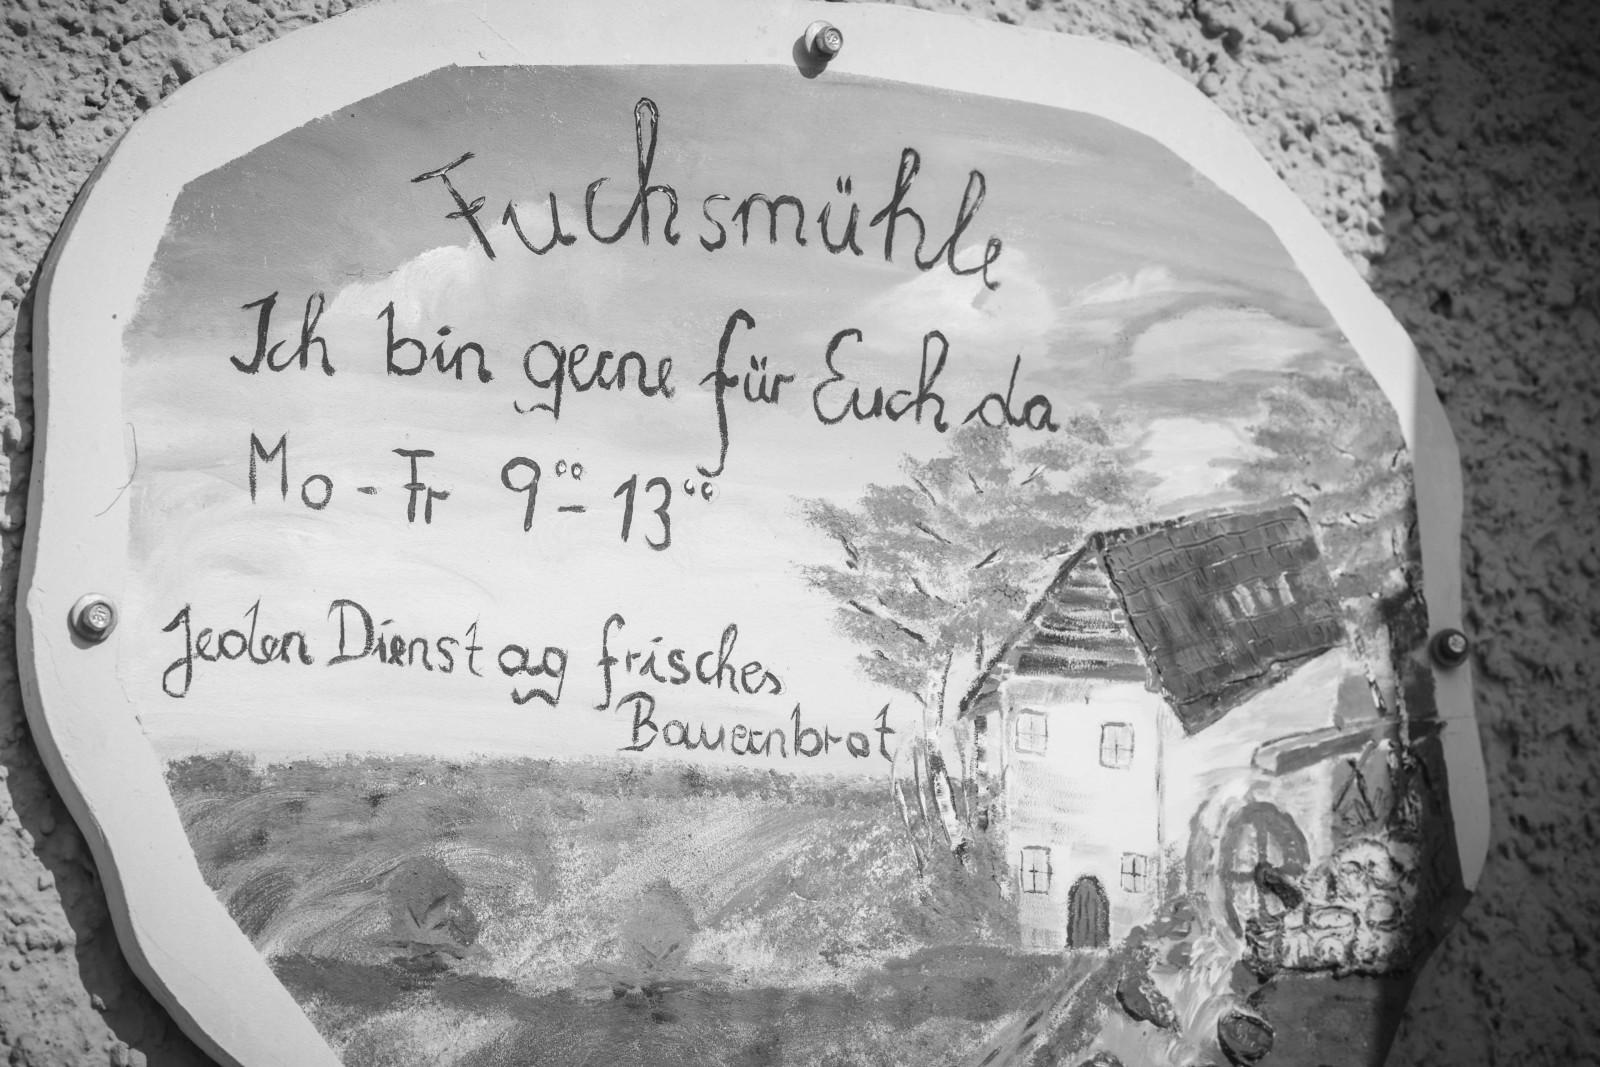 Fuchsmühle
Ich bin gerne für Euch da
Mo - Fr 9⁰⁰ - 13⁰⁰
Jeden Dienstag frisches
Bauernbrot